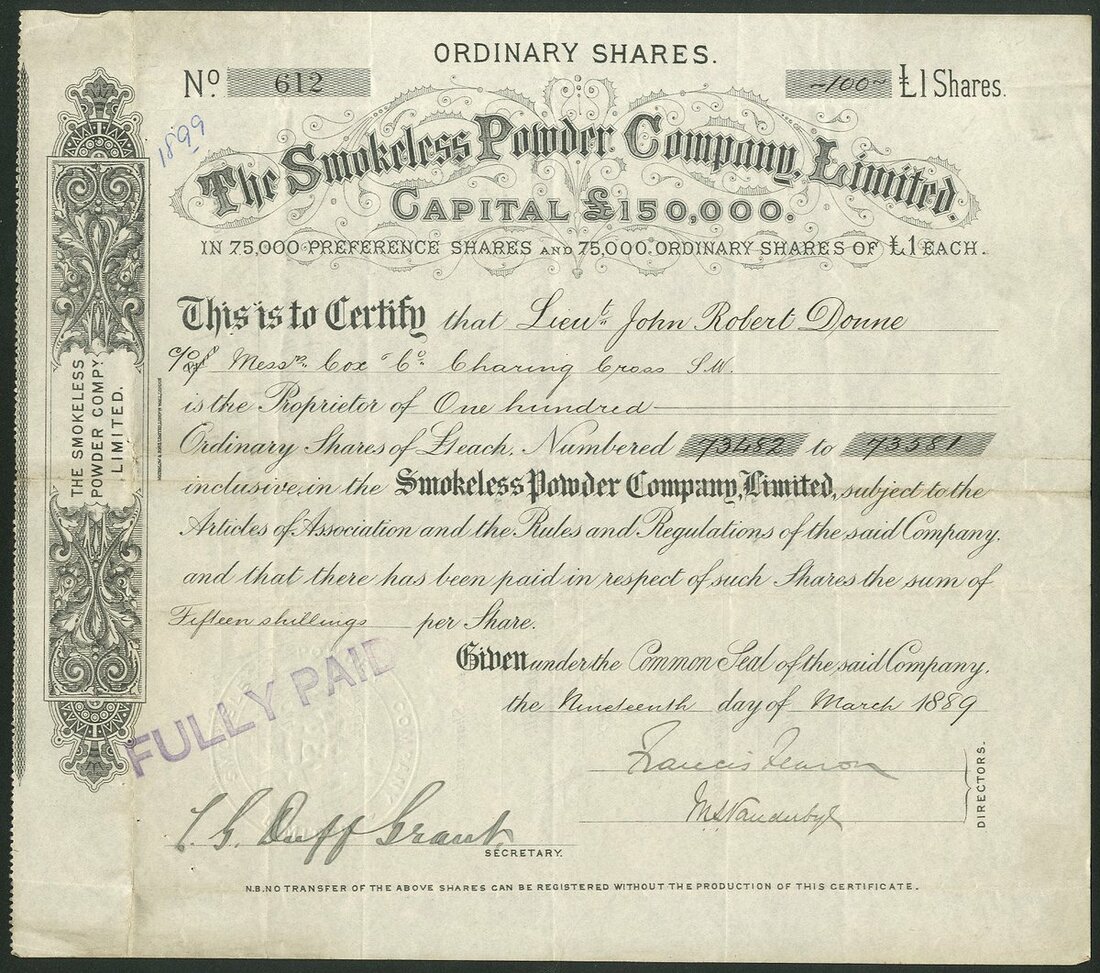 ORDINARY SHARES.
No. 612
~100~ £1 Shares.
1899
The Smokeless Powder Company, Limited.
CAPITAL £150,000.
IN 75,000 PREFERENCE SHARES AND 75,000 ORDINARY SHARES OF £1 EACH.
This is to Certify that Lieut. John Robert Donne
c/o Messrs. Cox & Co. Charing Cross S.W.
is the Proprietor of One hundred
Ordinary Shares of £1 each, Numbered 73482 to 73581
inclusive, in the Smokeless Powder Company, Limited, subject to the
Articles of Association and the Rules and Regulations of the said Company,
and that there has been paid in respect of such Shares the sum of
Fifteen shillings per Share.
Given under the Common Seal of the said Company,
the Nineteenth day of March 1889
FULLY PAID
Francis Fearon
M. S. Vanderbyl
DIRECTORS.
Duff Grant
SECRETARY.
N.B. NO TRANSFER OF THE ABOVE SHARES CAN BE REGISTERED WITHOUT THE PRODUCTION OF THIS CERTIFICATE.
THE SMOKELESS
POWDER COMPY
LIMITED.